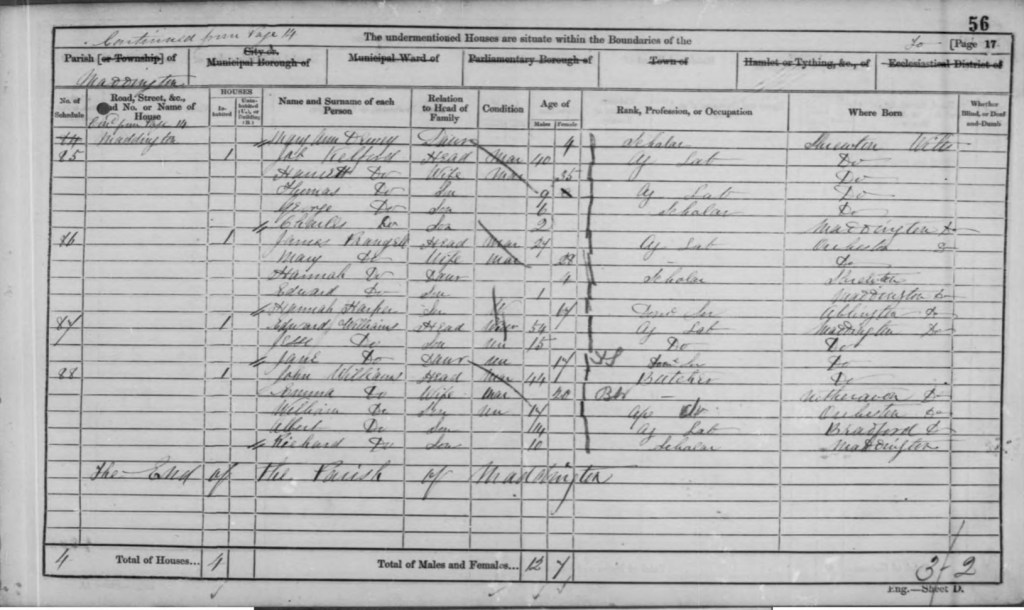 56
Continued from Page 14
The undermentioned Houses are situate within the Boundaries of the
[Page 17
Parish [or Township] of
City or
Municipal Borough of
Municipal Ward of
Parliamentary Borough of
Town of
Hamlet or Tything, &c., of
Ecclesiastical District of
Maddington
No. of Schedule
Road, Street, &c., and No. or Name of House
HOUSES
Inhabited
Uninhabited (U.), or Building (B.)
Name and Surname of each Person
Relation to Head of Family
Condition
Age of
Males
Females
Rank, Profession, or Occupation
Where Born
Whether Blind, or Deaf-and-Dumb
Maddington Mary Ann Daur 9 Scholar Shrewton Wilts
85 1 Head Mar 40 Ag Lab Do
Do Wife Mar 35 Do
Thomas Do Son 9 Ag Lab Do
George Do Son 6 Scholar Do
Charles Do Son 2 Maddington Do
86 1 James Head Mar 29 Ag Lab Orcheston Do
Mary Do Wife Mar 28 Do
Hannah Do Daur 4 Scholar
Edward Do Son 1 Maddington Do
Hannah Harper 17 Ser Do
87 1 Edward Williams Head 54 Ag Lab Maddington Do
Jesse Do Son Un 15 Do Do
Jane Do Daur Un 17 Dom Ser Do
88 1 John Williams Head Mar 44 Butcher Do
Emma Do Wife Mar 20 Do
William Do Un 17 Orcheston Do
Albert Do Son 14 Ag Lab Bradford Do
Richard Do Son 10 Scholar Maddington
The End of The Parish of Maddington
4 Total of Houses... 4 Total of Males and Females... 12 7
3-2
Eng.—Sheet D.